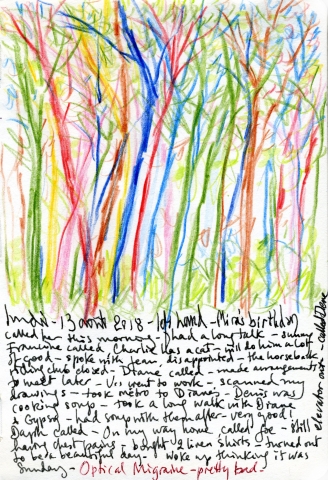 lundi - 13 août 2018 - left hand - Mira's birthday
called her this morning - had a long talk - sunny
Francine called, Charlie has a cat - will do him a lot
of good - spoke with Jean disappointed - the horseback
riding club closed - Diane called - made arrangements
to meet later - went to work - scanned my
drawings - took metro to Diane's - Denis was
cooking soup - took a long walk with Diane
& Gypsy - had soup with them after - very good!
called - On my way home called Joe - still
having chest pains - bought 2 linen shirts - turned out
to be a beautiful day - I woke up thinking it was
Sunday - Optical Migraine - pretty bad -
elevator man - called